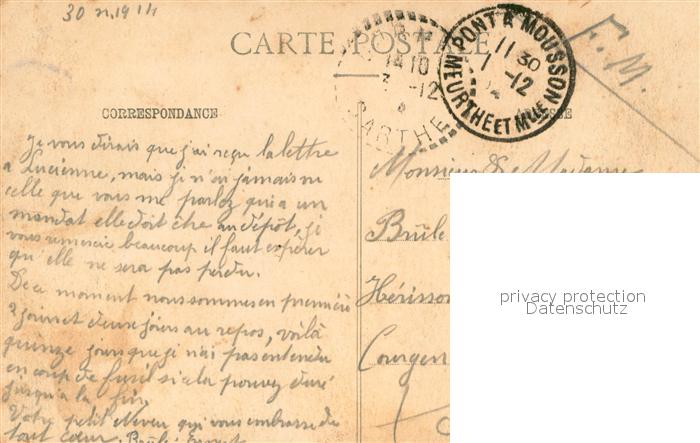 30 n. 1914
CARTE POSTALE
F. M.
PONT A MOUSSON
11 30
1 -12
MEURTHE ET MLLE
14 10
3 -12
SARTHE
CORRESPONDANCE
Je vous dirais que j'ai reçu la lettre
a Lucienne, mais je n'ai jamais vu
celle que vous me parlez qui a un
mandat elle doit être au dépôt, je
vous remercie beaucoup il faut espérer
qu'elle ne sera pas perdu.
De ce moment nous sommes en première
2 jours et deux jours au repos, voilà
quinze jours que je n'ai pas entendu
un coup de fusil si cela pouvez duré
jusqu'a la fin.
Votre petit neveu qui vous embrasse de
tout cœur. Brûlé Ernest
Monsieur & Madame
Brûlé
Hérisson
Courgen
privacy protection
Datenschutz